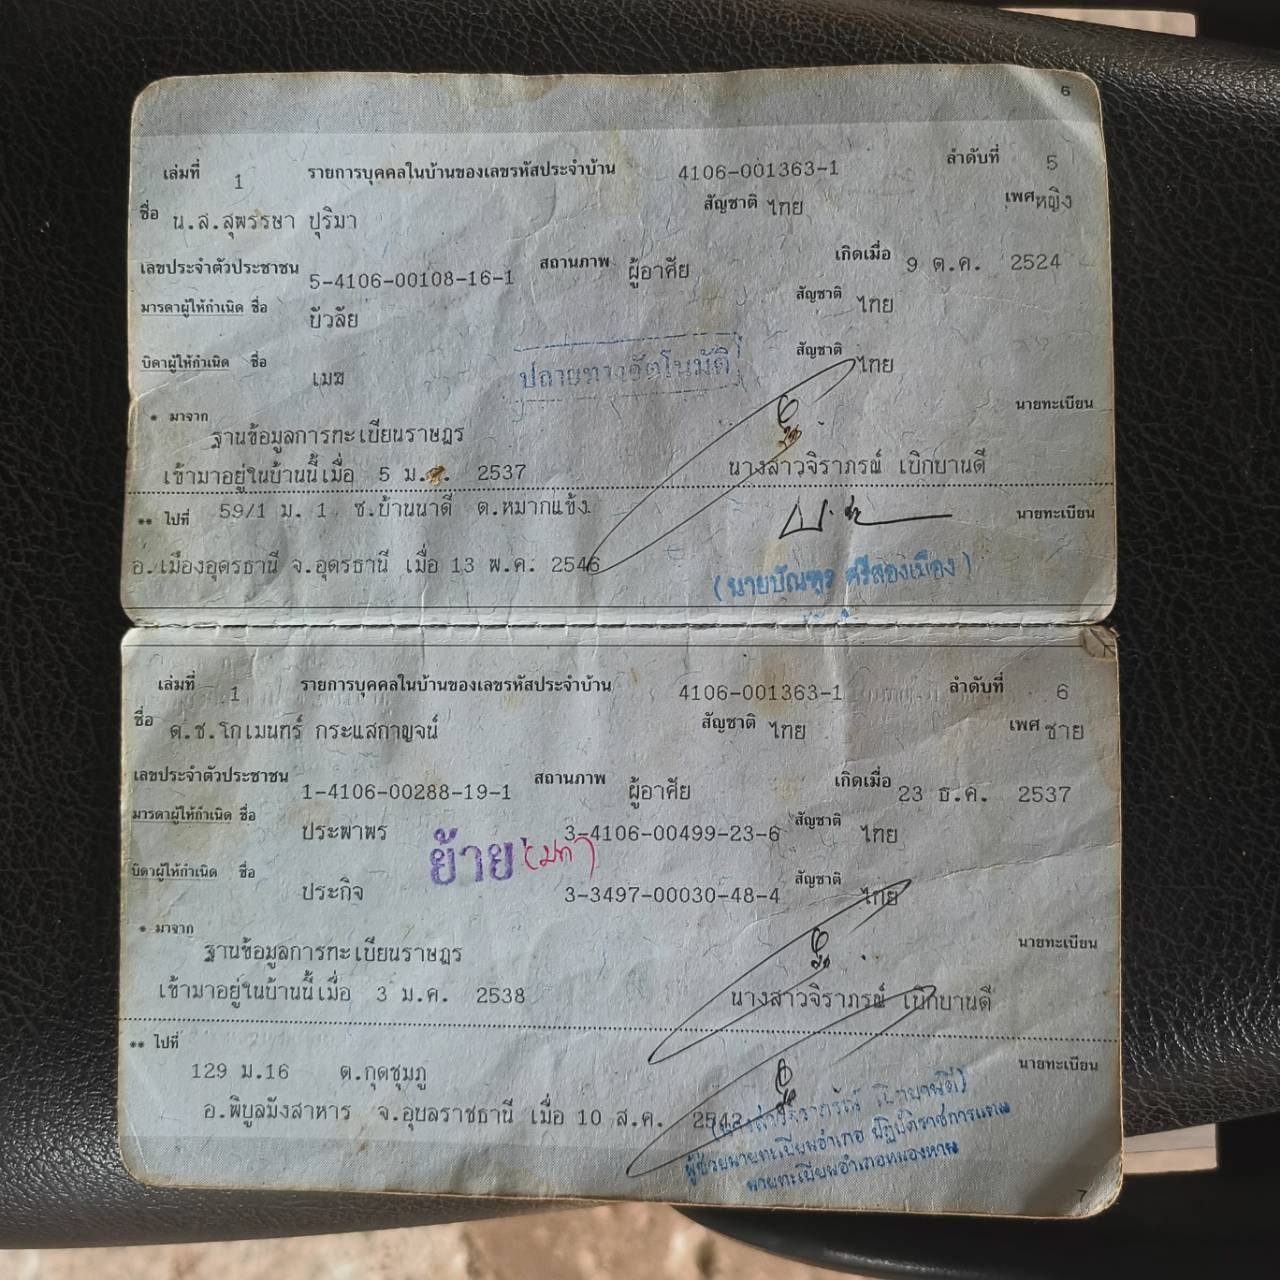 6
เล่มที่ 1 รายการบุคคลในบ้านของเลขรหัสประจำบ้าน 4106-001363-1 ลำดับที่ 5
ชื่อ น.ส.สุพรรษา ปุริมา สัญชาติ ไทย เพศ หญิง
เลขประจำตัวประชาชน 5-4106-00108-16-1 สถานภาพ ผู้อาศัย เกิดเมื่อ 9 ต.ค. 2524
มารดาผู้ให้กำเนิด ชื่อ บัวลัย สัญชาติ ไทย
บิดาผู้ให้กำเนิด ชื่อ เมฆ สัญชาติ ไทย
ปลายทางอัตโนมัติ
* มาจาก ฐานข้อมูลการทะเบียนราษฎร นายทะเบียน
เข้ามาอยู่ในบ้านนี้เมื่อ 5 ม. 2537 นางสาวจิราภรณ์ เบิกบานดี
** ไปที่ 59/1 ม. 1 ซ.บ้านนาดี ต.หมากแข้ง นายทะเบียน
อ.เมืองอุดรธานี จ.อุดรธานี เมื่อ 13 พ.ค. 2546
(นายบัณฑูร ศรีสองเมือง)
เล่มที่ 1 รายการบุคคลในบ้านของเลขรหัสประจำบ้าน 4106-001363-1 ลำดับที่ 6
ชื่อ ด.ช.โกเมนทร์ กระแสกาญจน์ สัญชาติ ไทย เพศ ชาย
เลขประจำตัวประชาชน 1-4106-00288-19-1 สถานภาพ ผู้อาศัย เกิดเมื่อ 23 ธ.ค. 2537
มารดาผู้ให้กำเนิด ชื่อ ประพาพร 3-4106-00499-23-6 สัญชาติ ไทย
ย้าย
บิดาผู้ให้กำเนิด ชื่อ ประกิจ 3-3497-00030-48-4 สัญชาติ ไทย
* มาจาก ฐานข้อมูลการทะเบียนราษฎร นายทะเบียน
เข้ามาอยู่ในบ้านนี้เมื่อ 3 ม.ค. 2538 นางสาวจิราภรณ์ เบิกบานดี
** ไปที่ นายทะเบียน
129 ม.16 ต.กุดชุมภู
อ.พิบูลมังสาหาร จ.อุบลราชธานี เมื่อ 10 ส.ค. 2542
(นางสาวจิราภรณ์ เบิกบานดี)
ผู้ช่วยนายทะเบียนอำเภอ ปฏิบัติราชการแทน
นายทะเบียนอำเภอหนองหาน
7